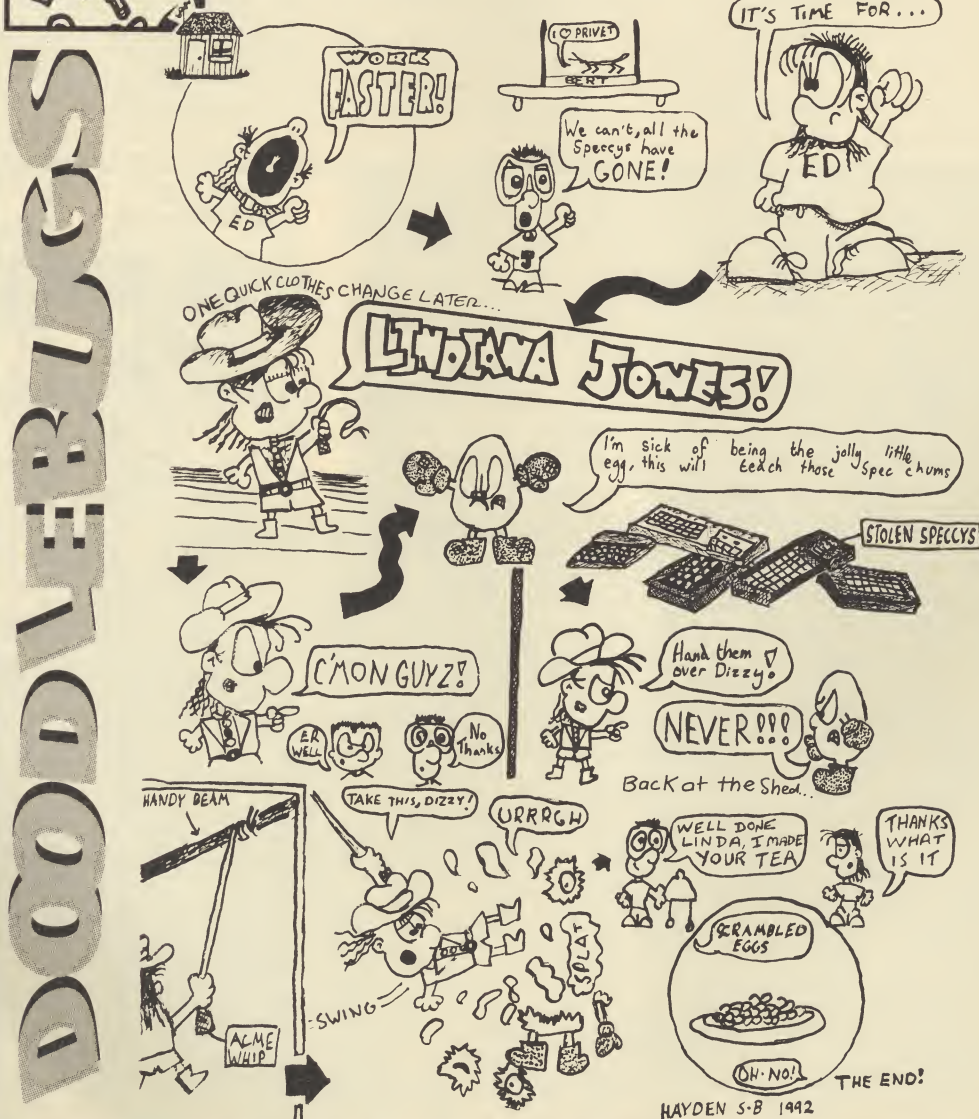 DOODLEBUGS
WORK
FASTER!
ED
I ♡ PRIVET
BERT
We can't, all the
Speccys have
GONE!
J
IT'S TIME FOR...
ED
ONE QUICK CLOTHES CHANGE LATER...
LINDIANA JONES!
I'm sick of being the jolly little
egg, this will teach those Spec chums
STOLEN SPECCYS
C'MON GUYZ!
ER
WELL
No
Thanks
Hand them
over Dizzy!
NEVER!!!
Back at the Shed...
HANDY BEAM
ACME
WHIP
TAKE THIS, DIZZY!
URRRGH
SWING
SPLAT
WELL DONE
LINDA, I MADE
YOUR TEA
THANKS
WHAT
IS IT
SCRAMBLED
EGGS
OH·NO!
THE END!
HAYDEN S-B 1992